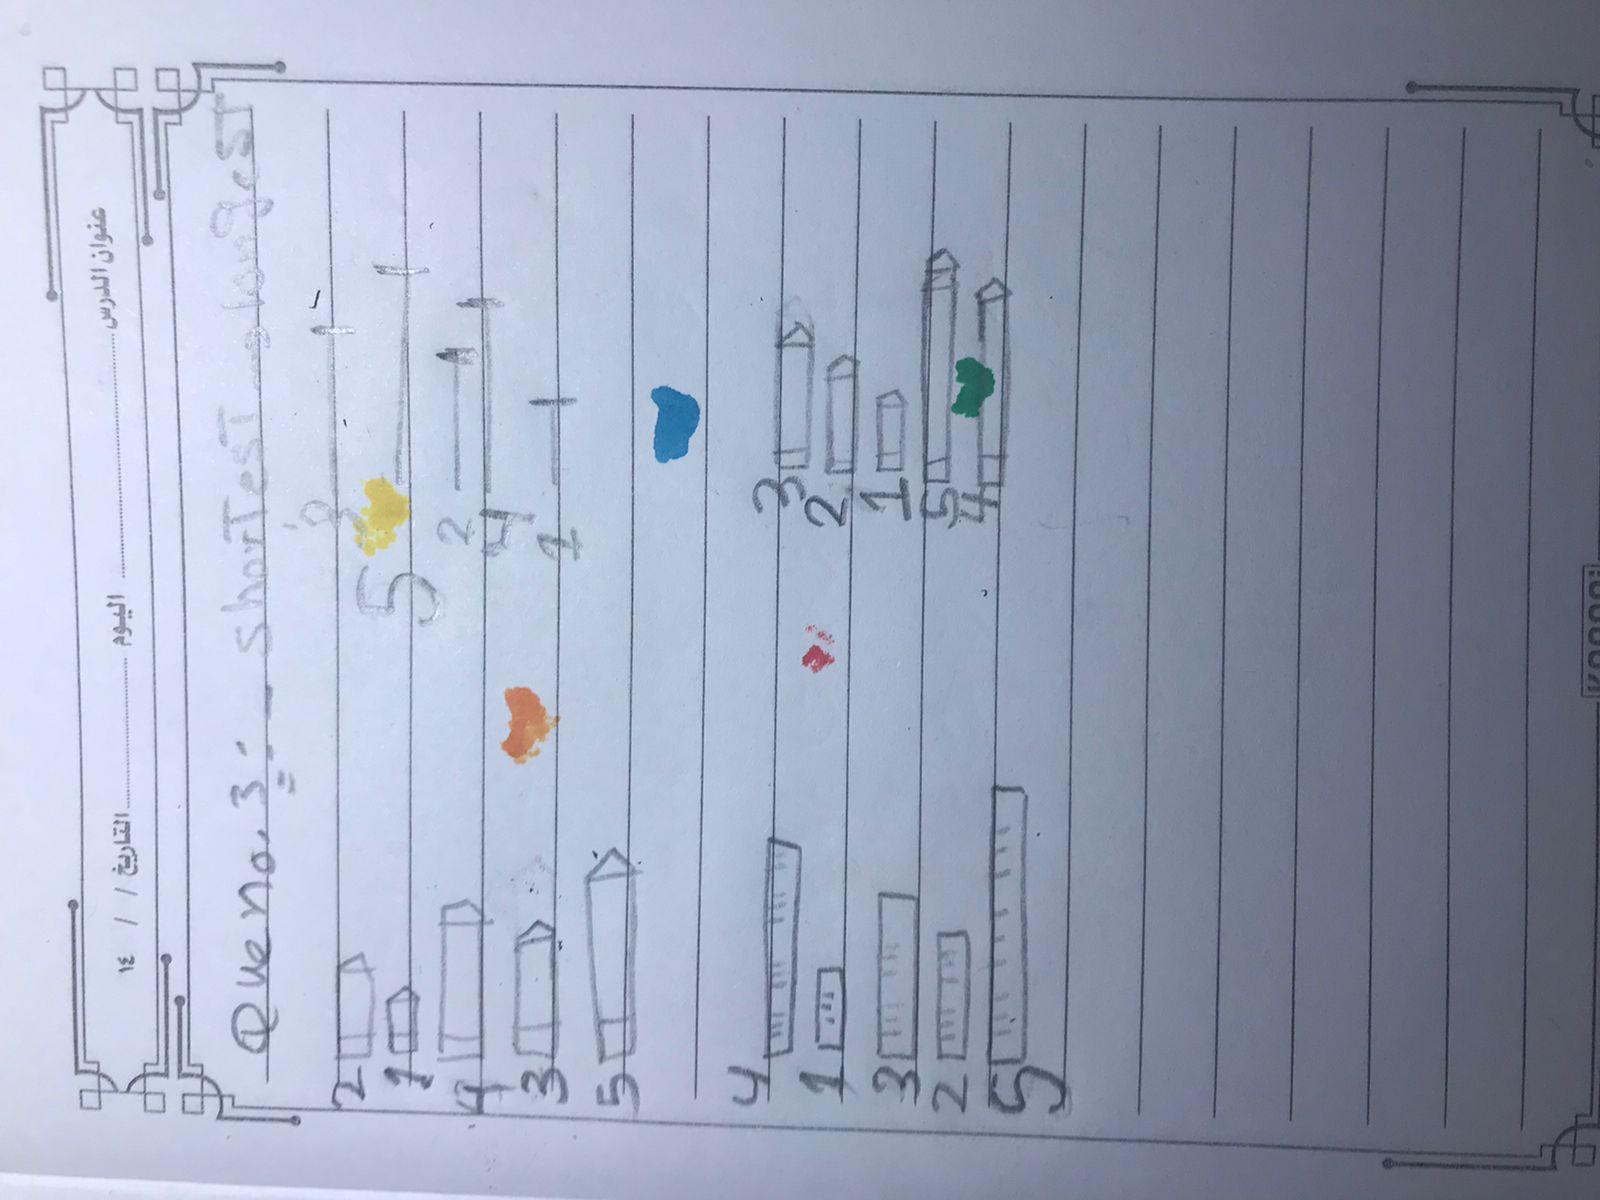 عنوان الدرس اليوم التاريخ / / ١٤
Que no. 3:- shorTesT → longesT
2 3
1 5
4 2
3 4
5 1
4 3
1 2
3 1
2 5
5 4